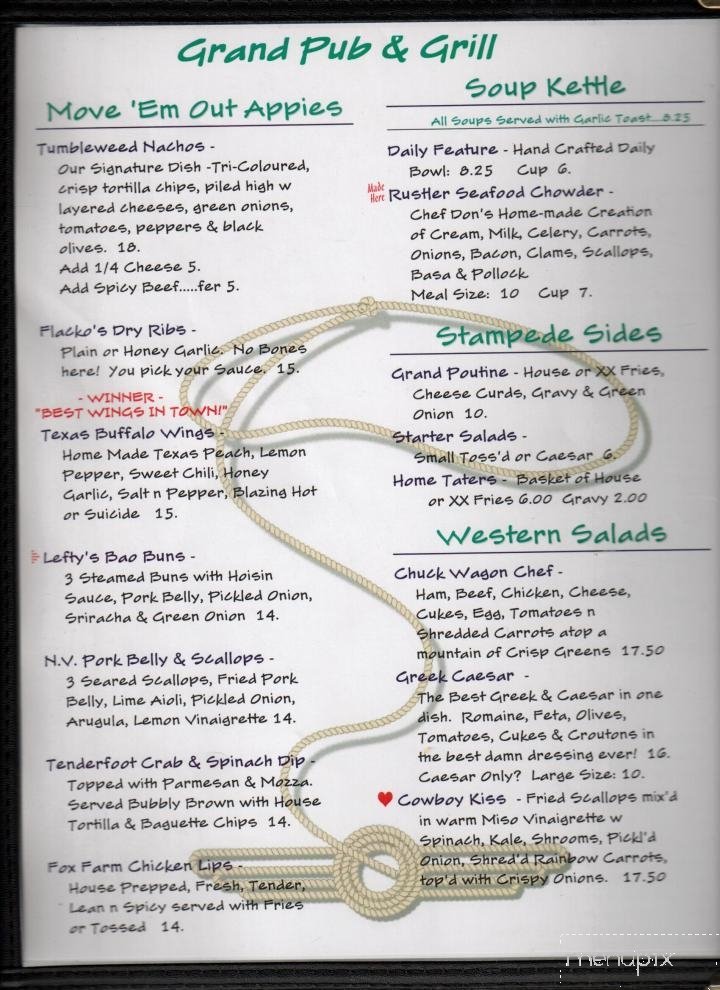 Grand Pub & Grill
Move 'Em Out Appies
Tumbleweed Nachos -
Our Signature Dish -Tri-Coloured,
crisp tortilla chips, piled high w
layered cheeses, green onions,
tomatoes, peppers & black
olives. 18.
Add 1/4 Cheese 5.
Add Spicy Beef.....fer 5.
Flacko's Dry Ribs -
Plain or Honey Garlic. No Bones
here! You pick your Sauce. 15.
- WINNER -
"BEST WINGS IN TOWN!"
Texas Buffalo Wings -
Home Made Texas Peach, Lemon
Pepper, Sweet Chili, Honey
Garlic, Salt n Pepper, Blazing Hot
or Suicide 15.
Lefty's Bao Buns -
3 Steamed Buns with Hoisin
Sauce, Pork Belly, Pickled Onion,
Sriracha & Green Onion 14.
N.V. Pork Belly & Scallops -
3 Seared Scallops, Fried Pork
Belly, Lime Aioli, Pickled Onion,
Arugula, Lemon Vinaigrette 14.
Tenderfoot Crab & Spinach Dip -
Topped with Parmesan & Mozza.
Served Bubbly Brown with House
Tortilla & Baguette Chips 14.
Fox Farm Chicken Lips -
House Prepped, Fresh, Tender,
Lean n Spicy served with Fries
or Tossed 14.
Soup Kettle
All Soups Served with Garlic Toast....8.25
Daily Feature - Hand Crafted Daily
Bowl: 8.25 Cup 6.
Made
Here
Rustler Seafood Chowder -
Chef Don's Home-made Creation
of Cream, Milk, Celery, Carrots,
Onions, Bacon, Clams, Scallops,
Basa & Pollock
Meal Size: 10 Cup 7.
Stampede Sides
Grand Poutine - House or XX Fries,
Cheese Curds, Gravy & Green
Onion 10.
Starter Salads -
Small Toss'd or Caesar 6.
Home Taters - Basket of House
or XX Fries 6.00 Gravy 2.00
Western Salads
Chuck Wagon Chef -
Ham, Beef, Chicken, Cheese,
Cukes, Egg, Tomatoes n
Shredded Carrots atop a
mountain of Crisp Greens 17.50
Greek Caesar -
The Best Greek & Caesar in one
dish. Romaine, Feta, Olives,
Tomatoes, Cukes & Croutons in
the best damn dressing ever! 16.
Caesar Only? Large Size: 10.
Cowboy Kiss - Fried Scallops mix'd
in warm Miso Vinaigrette w
Spinach, Kale, Shrooms, Pickl'd
Onion, Shred'd Rainbow Carrots,
top'd with Crispy Onions. 17.50
menupix